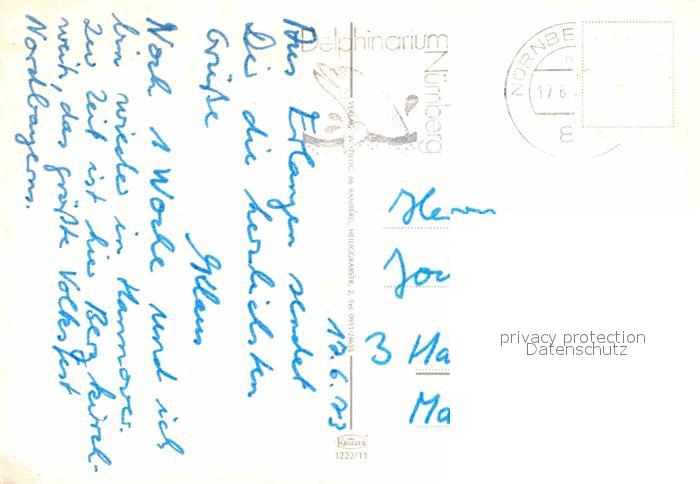 17.6.73
Aus Erlangen sendet
Dir die herzlichsten
Grüße
Klaus
Noch 1 Woche und ich
bin wieder in Hannover.
Zur Zeit ist hier Bergkirch-
weih, das größte Volksfest
Nordbayerns.
Delphinarium
Nürnberg
NÜRNBE
17.6.
8
VERLAG 86 BAMBERG, HEILIGGRABSTR. 2, Tel. 0951/24655
KRÜGER
1222/11
Herrn
Jo
3 Ha
Ma
privacy protection
Datenschutz